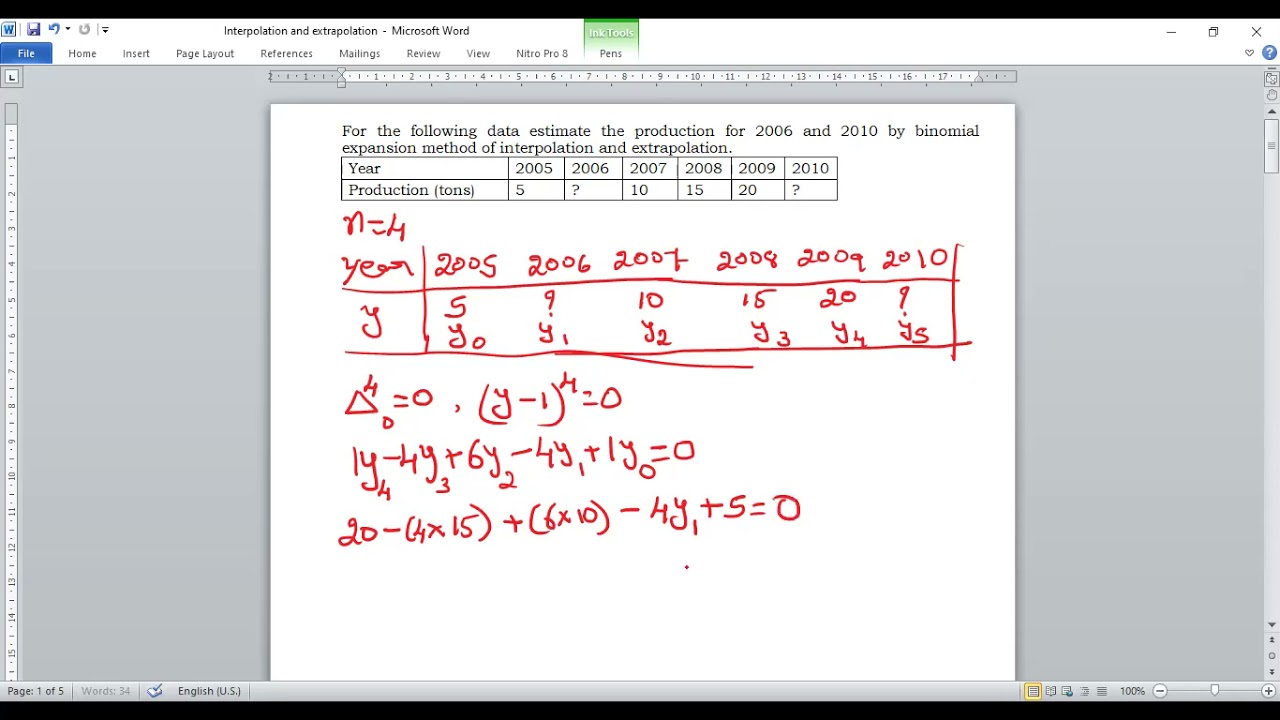 Interpolation and extrapolation - Microsoft Word
Ink Tools
File Home Insert Page Layout References Mailings Review View Nitro Pro 8 Pens
2 1 1 2 3 4 5 6 7 8 9 10 11 12 13 14 15 16 17
For the following data estimate the production for 2006 and 2010 by binomial
expansion method of interpolation and extrapolation.
Year 2005 2006 2007 2008 2009 2010
Production (tons) 5 ? 10 15 20 ?
n=4
year 2005 2006 2007 2008 2009 2010
y 5 ? 10 15 20 ?
y₀ y₁ y₂ y₃ y₄ y₅
Δ⁴₀=0, (y-1)⁴=0
1y₄-4y₃+6y₂-4y₁+1y₀=0
20-(4×15)+(6×10)-4y₁+5=0
Page: 1 of 5 Words: 34 English (U.S.) 100%